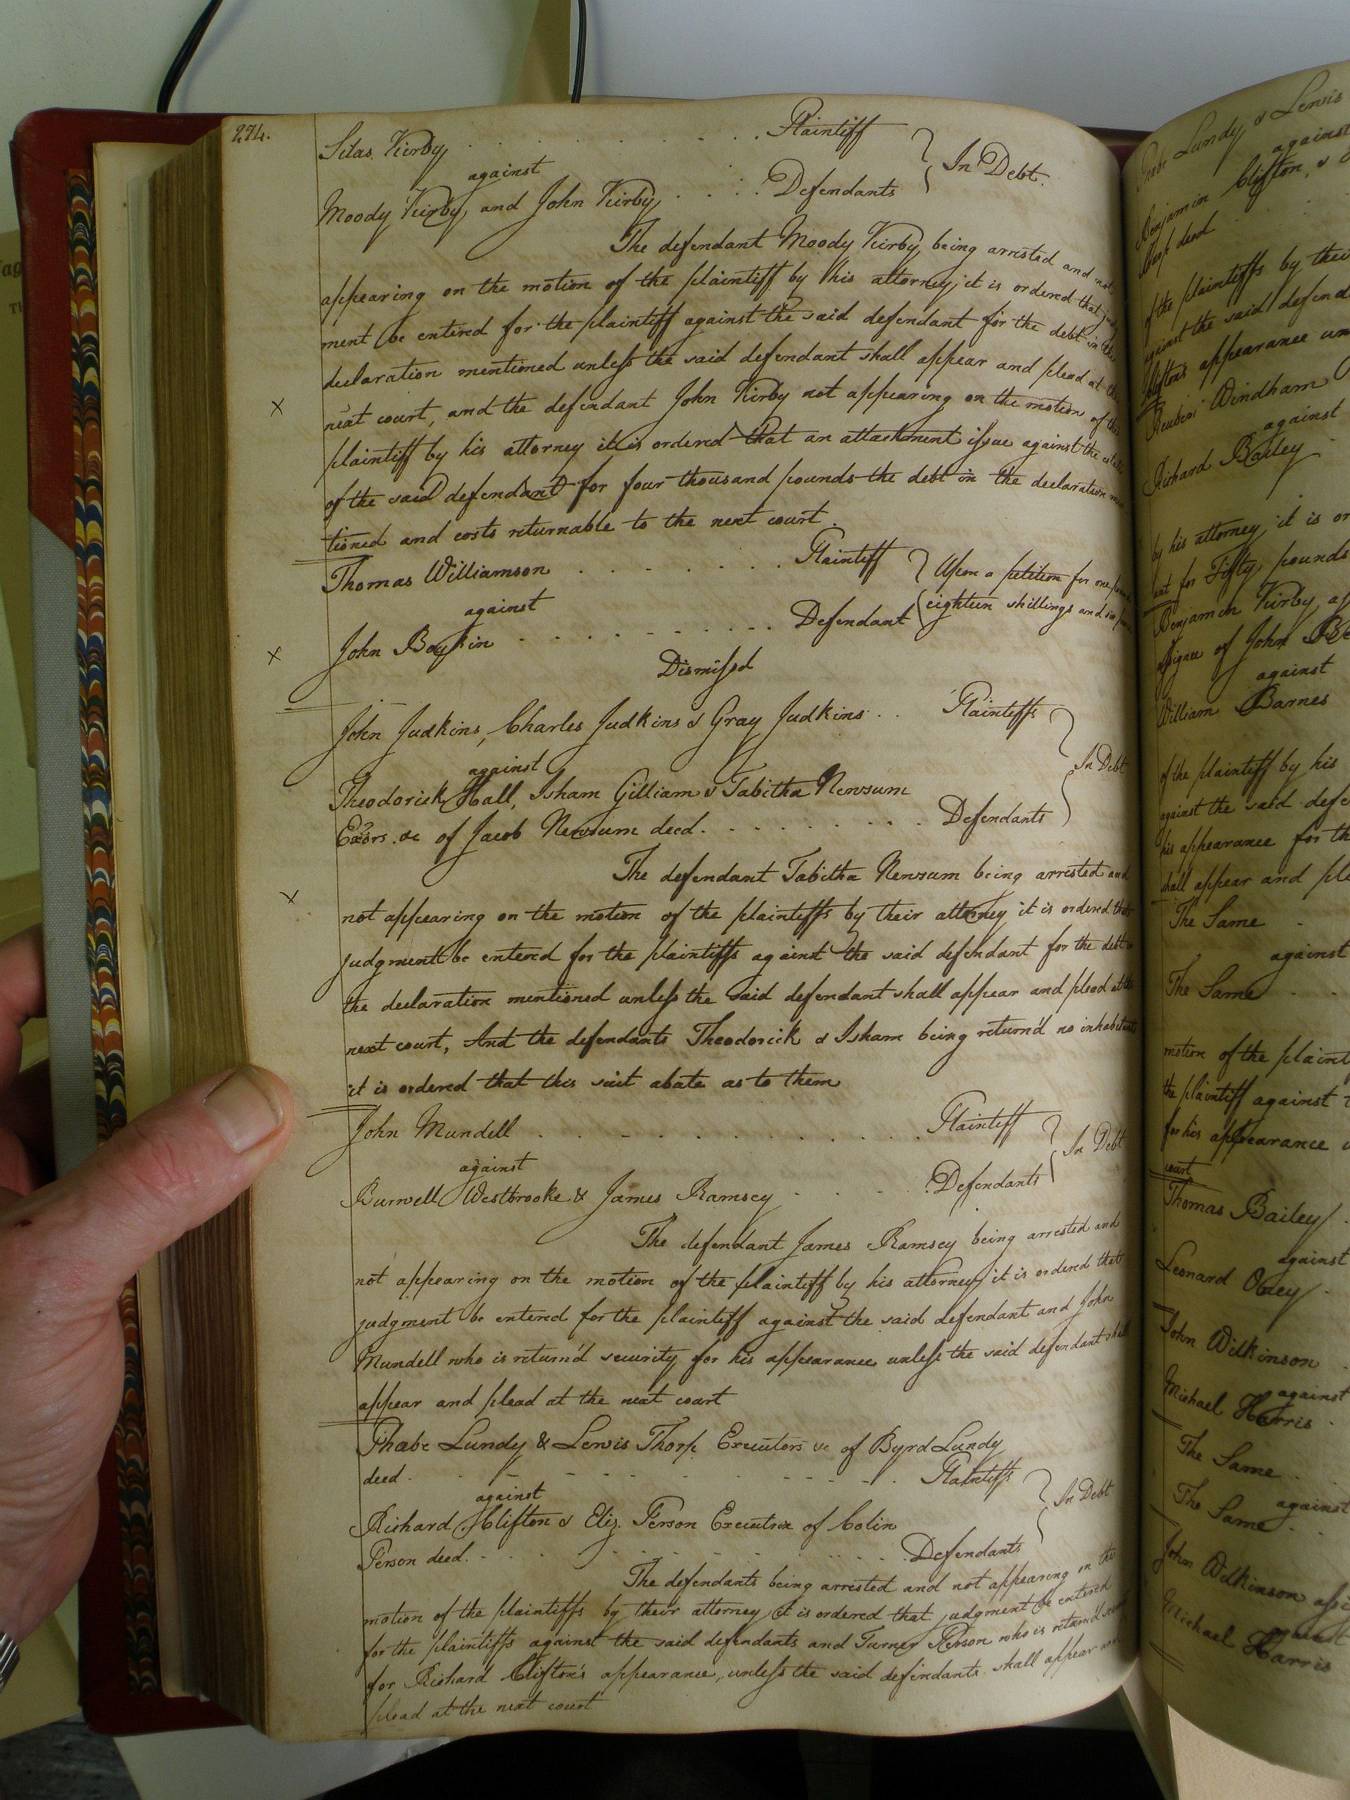 274.
Silas Kirby . . . . . . . Plaintiff
against } In Debt.
Moody Kirby, and John Kirby . . . . Defendants
The defendant Moody Kirby being arrested and not
appearing on the motion of the plaintiff by his attorney, it is ordered that judg
ment be entered for the plaintiff against the said defendant for the debt in the
declaration mentioned unless the said defendant shall appear and plead at the
next court, and the defendant John Kirby not appearing on the motion of the
plaintiff by his attorney it is ordered that an attachment issue against the estate
of the said defendant for four thousand pounds the debt in the declaration men
tioned and costs returnable to the next court.
Thomas Williamson . . . . . . . . Plaintiff } Upon a petition for one
against
John Boykin . . . . . . . . . . Defendant eighteen shillings and
Dismissd
John Judkins, Charles Judkins & Gray Judkins . . Plaintiffs
against } In Debt
Theodorick Hall, Isham Gilliam & Tabitha Newsum
Exors. &c of Jacob Newsum deced. . . . . . . . . Defendants
The defendant Tabitha Newsum being arrested and
not appearing on the motion of the plaintiffs by their attorney it is ordered that
judgment be entered for the plaintiffs against the said defendant for the debt in
the declaration mentioned unless the said defendant shall appear and plead at the
next court, And the defendants Theodorick & Isham being return'd no inhabitants
it is ordered that this suit abate as to them
John Mundell . . . . . . . . . . Plaintiff
against } In Debt
Burwell Westbrooke & James Ramsey . . . . Defendants
The defendant James Ramsey being arrested and
not appearing on the motion of the plaintiff by his attorney, it is ordered that
judgment be entered for the plaintiff against the said defendant and John
Mundell who is return'd security for his appearance unless the said defendant shall
appear and plead at the next court
Phabe Lundy & Lewis Thorp Executors &c of Byrd Lundy
deed. . . . . . . . . . Plaintiffs
against } In Debt
Richard Clifton & Eliz. Person Executrix of Colin
Person deed. . . . . . . . . . Defendants
The defendants being arrested and not appearing on the
motion of the plaintiffs by their attorney it is ordered that judgment be entered
for the plaintiffs against the said defendants and Turner Person who is return'd
for Richard Clifton's appearance, unless the said defendants shall appear and
plead at the next court
Lundy & Lewis
against
Benjamin Clifton, &
deed
of the plaintiffs by their
against the said defend
Cliftons appearance
Windham
against
Richard Bailey
by his attorney, it is or
for Fifty pounds
Benjamin Kirby
of John
against
William Barnes
of the plaintiff by his
against the said defe
his appearance for th
shall appear and ple
The Same
against
The Same
motion of the plaint
the plaintiff against
for his appearance
court
Thomas Bailey
against
Leonard Oney
John Wilkinson
against
Michael Harris
The Same
against
The Same
John Wilkinson assi
against
Michael Harris